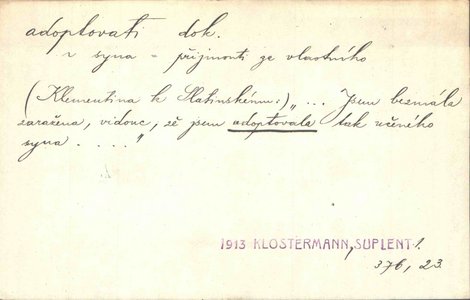 adoptovati dok.
~ syna = přijmouti za vlastního
(Klementina k Slatinskému:) „... Jsem bezmála
zaražena, vidouc, že jsem adoptovala tak učeného
syna . . . . "
1913 KLOSTERMANN, SUPLENT 1.
376, 23.